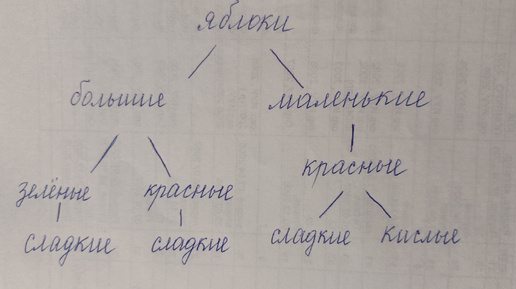 яблоки
большие маленькие
красные
зелёные красные
сладкие сладкие сладкие кислые